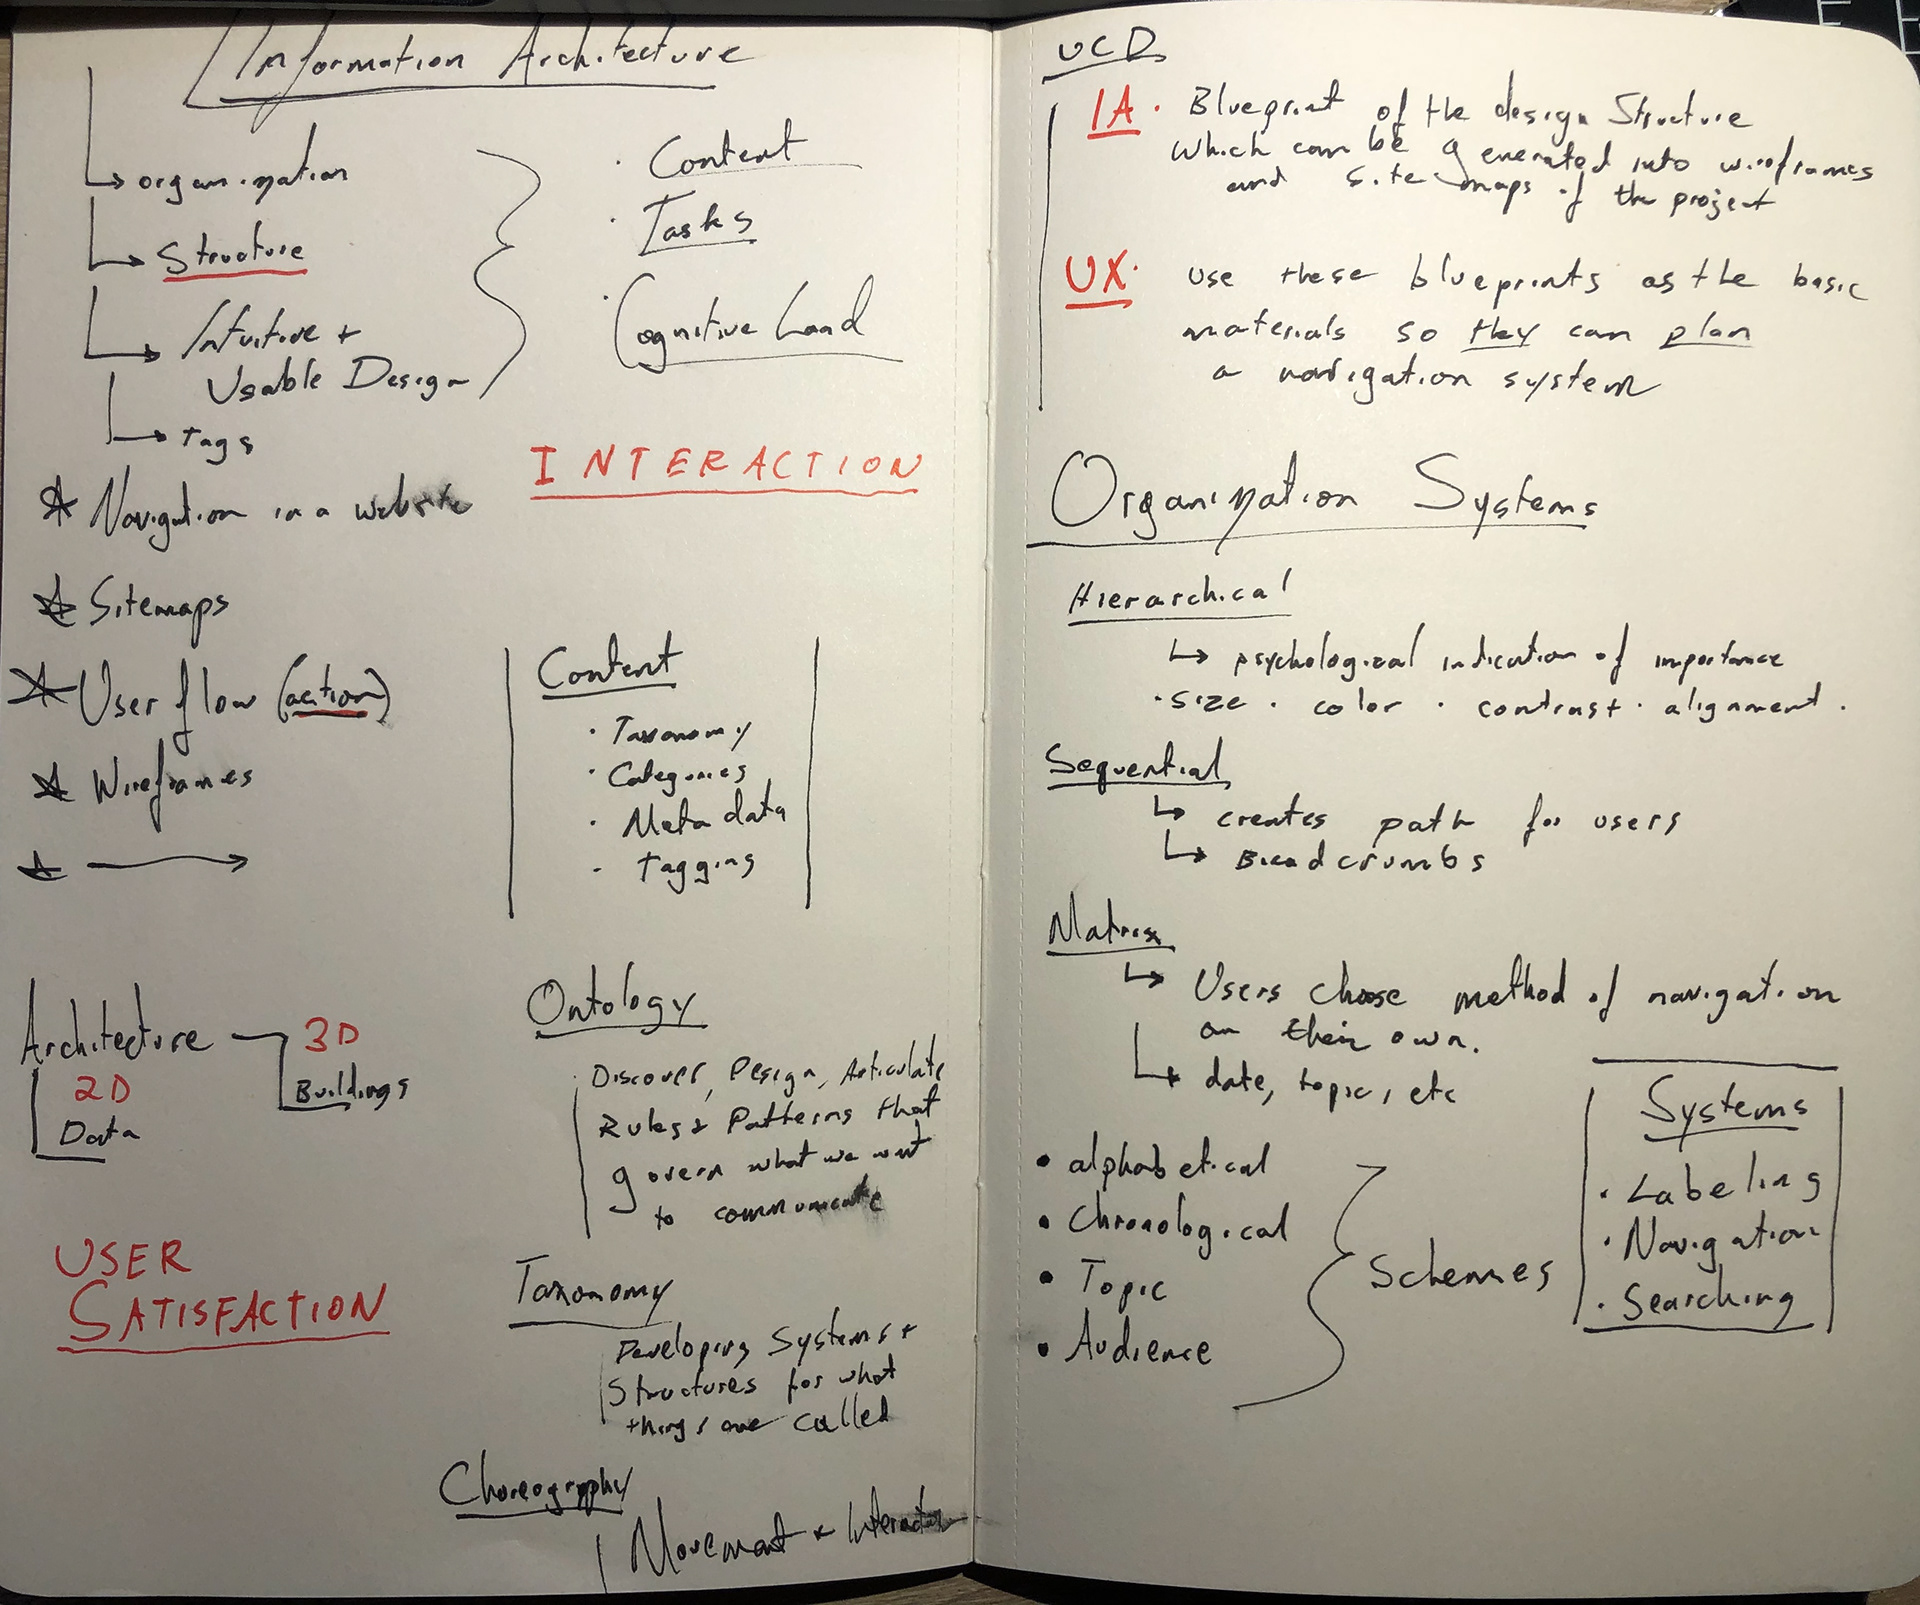 Information Architecture
organization
Structure
Intuitive +
Usable Design
tags
· Content
· Tasks
· Cognitive Load
INTERACTION
Navigation in a website
Sitemaps
User flow (action)
Wireframes
Content
· Taxonomy
· Categories
· Meta data
· Tagging
Architecture
2D
Data
3D
Buildings
USER
SATISFACTION
Ontology
Discover, Design, Articulate
Rules + Patterns that
govern what we want
to communicate
Taxonomy
Developing Systems +
Structures for what
things are called
Choreography
Movement + Interaction
UCD
IA · Blueprint of the design Structure
which can be generated into wireframes
and site-maps of the project
UX · use these blueprints as the basic
materials so they can plan
a navigation system
Organization Systems
Hierarchical
psychological indication of importance
· size · color · contrast · alignment.
Sequential
creates path for users
Breadcrumbs
Matrix
Users choose method of navigation
on their own.
date, topic, etc
• alphabetical
• Chronological
• Topic
• Audience
Schemes
Systems
· Labeling
· Navigation
· Searching